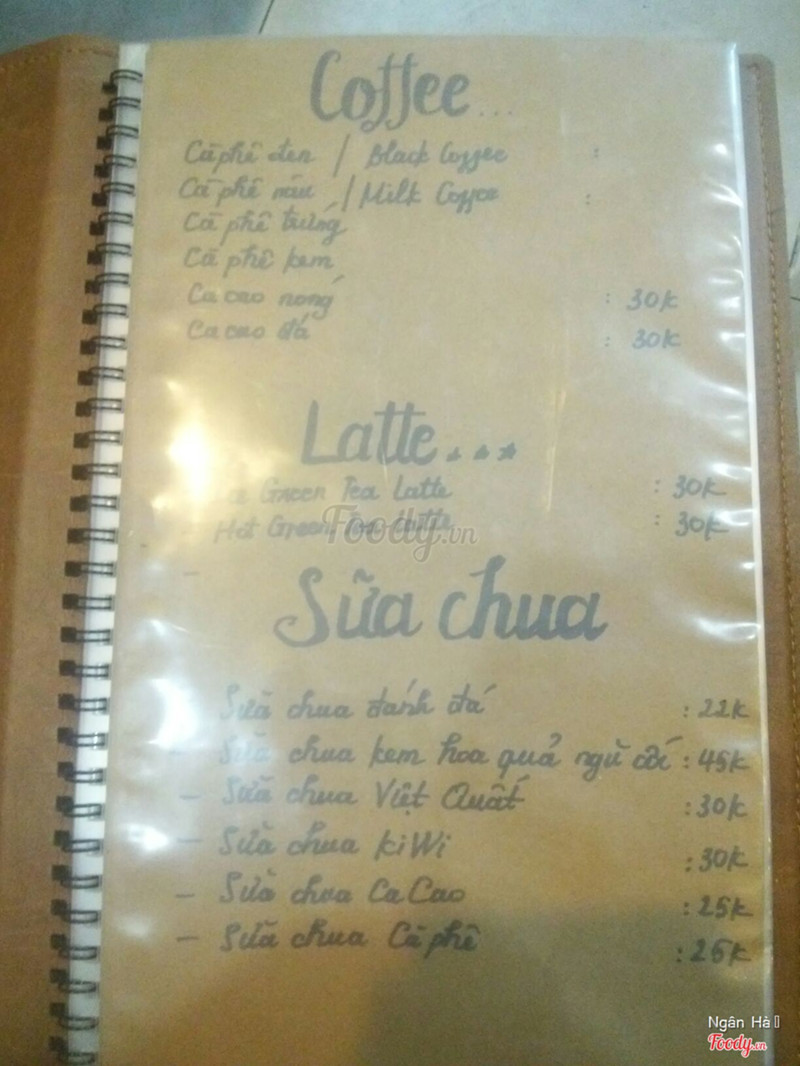 Coffee...
Cà phê đen / Black Coffee :
Cà phê nâu / Milk Coffee :
Cà phê trứng
Cà phê kem
Ca cao nóng : 30K
Ca cao đá : 30K
Latte...
Green Tea Latte : 30K
Hot Green Tea Latte : 30K
Foody.vn
Sữa chua
Sữa chua đánh đá : 22K
- Sữa chua kem hoa quả ngũ cốc : 45K
- Sữa chua Việt Quất : 30K
- Sữa chua kiWi : 30K
- Sữa chua Ca Cao : 25K
- Sữa chua Cà phê : 25K
Ngân Hà
Foody.vn